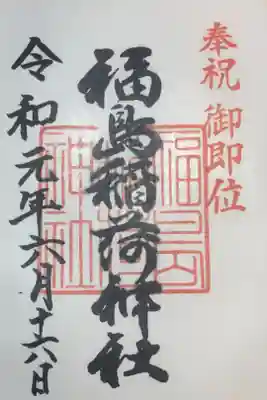 奉祝 御即位
福島稲荷神社
令和元年六月十六日